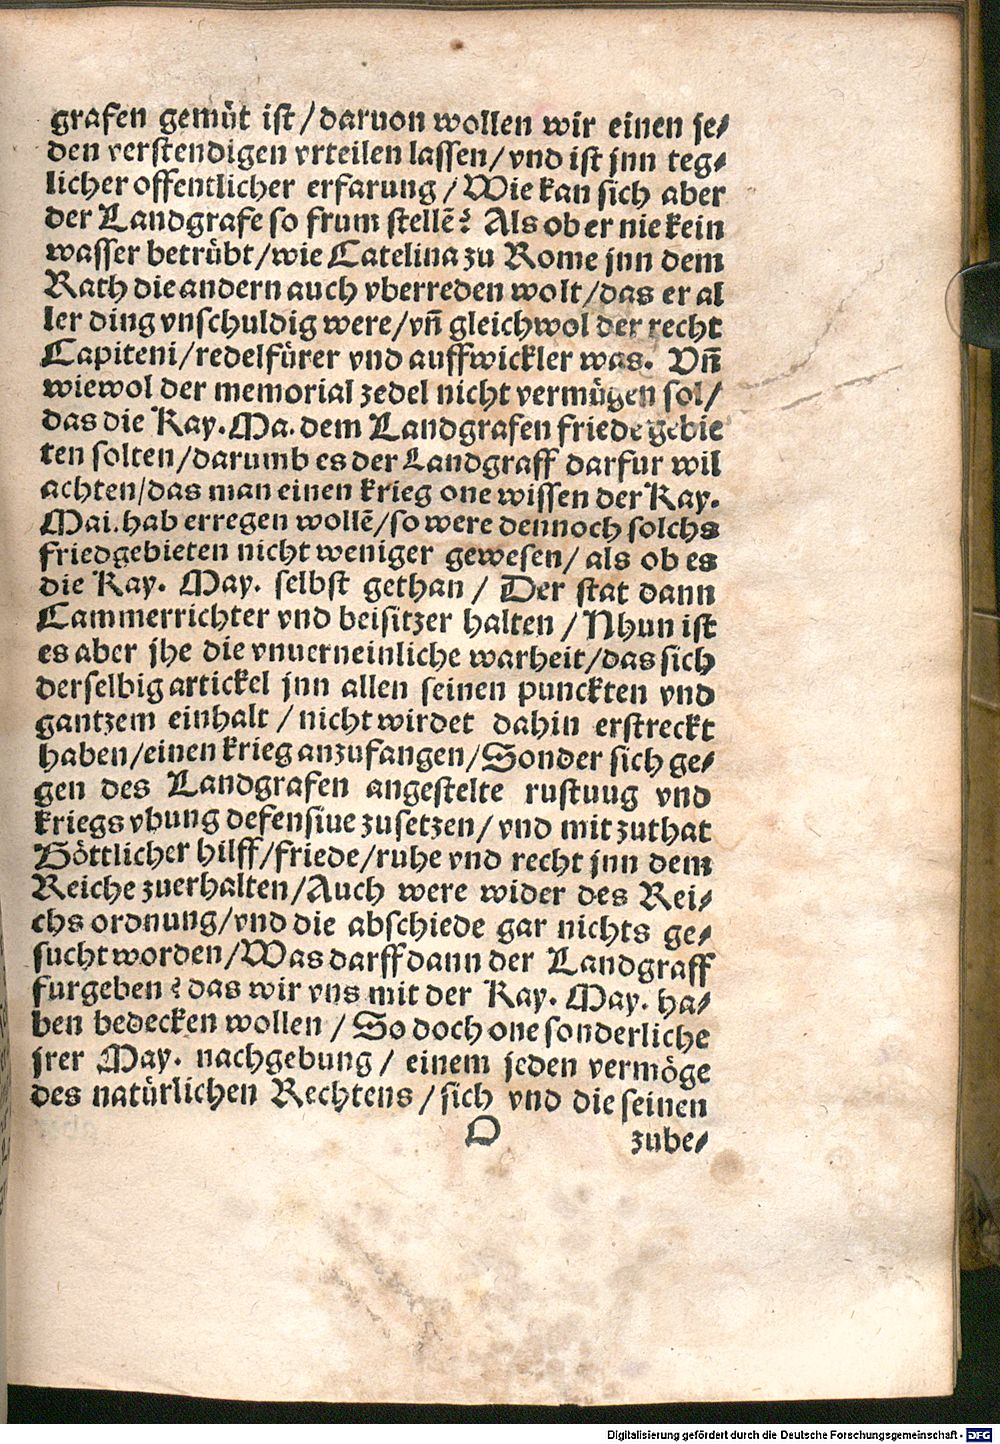 grafen gemüt ist/daruon wollen wir einen je⸗
den verstendigen vrteilen lassen/vnd ist jnn teg⸗
licher offentlicher erfarung/Wie kan sich aber
der Landgrafe so frum stellē? Als ob er nie kein
wasser betrübt/wie Catelina zu Rome jnn dem
Rath die andern auch vberreden wolt/das er al
ler ding vnschuldig were/vn̄ gleichwol der recht
Capiteni/redelfürer vnd auffwickler was. Vn̄
wiewol der memorial zedel nicht vermügen sol/
das die Kay.Ma. dem Landgrafen friede gebie
ten solten/darumb es der Landgraff darfur wil
achten/das man einen krieg one wissen der Kay.
Mai. hab erregen wollē/so were dennoch solchs
friedgebieten nicht weniger gewesen/als ob es
die Kay. May. selbst gethan/Der stat dann
Cammerrichter vnd beisitzer halten/Nhun ist
es aber jhe die vnuerneinliche warheit/das sich
derselbig artickel jnn allen seinen punckten vnd
gantzem einhalt/nicht wirdet dahin erstreckt
haben/einen krieg anzufangen/Sonder sich ge⸗
gen des Landgrafen angestelte rustuug vnd
kriegs vbung defensiue zusetzen/vnd mit zuthat
Göttlicher hilff/friede/ruhe vnd recht jnn dem
Reiche zuerhalten/Auch were wider des Rei⸗
chs ordnung/vnd die abschiede gar nichts ge⸗
sucht worden/Was darff dann der Landgraff
furgeben? das wir vns mit der Kay. May. ha⸗
ben bedecken wollen/So doch one sonderliche
jrer May. nachgebung/einem jeden vermöge
des natürlichen Rechtens/sich vnd die seinen
D zube⸗
Digitalisierung gefördert durch die Deutsche Forschungsgemeinschaft - DFG